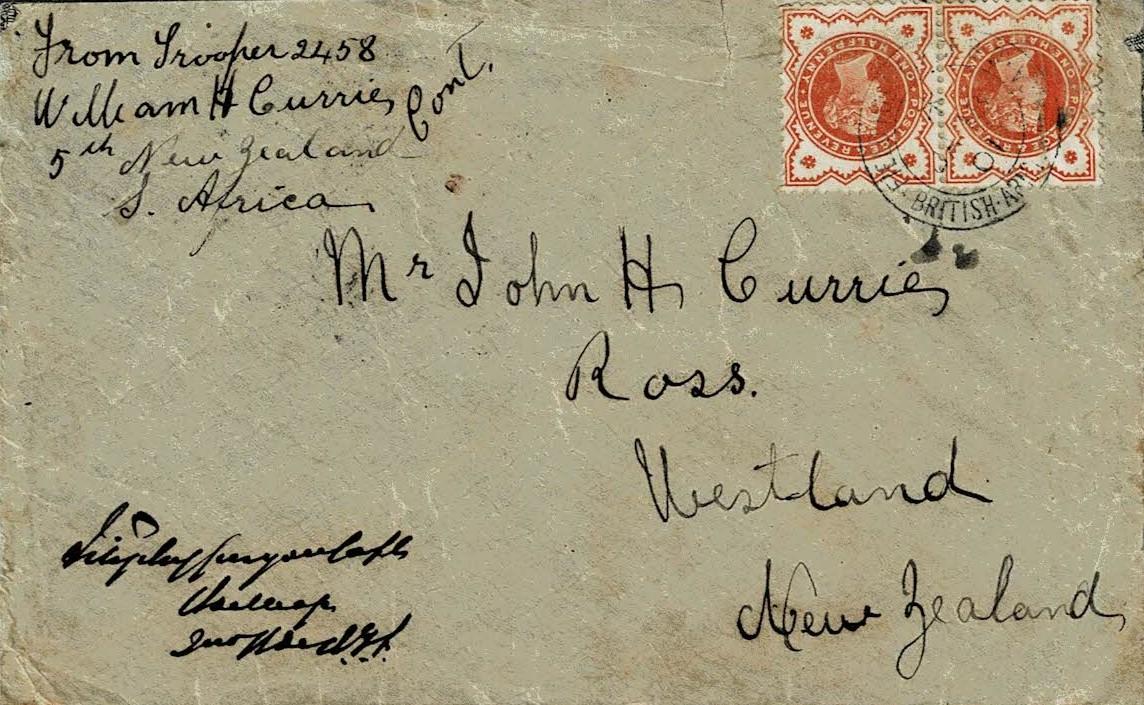 From Trooper 2458
William H Currie
5th New Zealand Cont.
S. Africa
POSTAGE & REVENUE · ONE HALFPENNY
POSTAGE & REVENUE · ONE HALFPENNY
BRITISH · AR
01
Mr John H Currie
Ross.
Westland
New Zealand